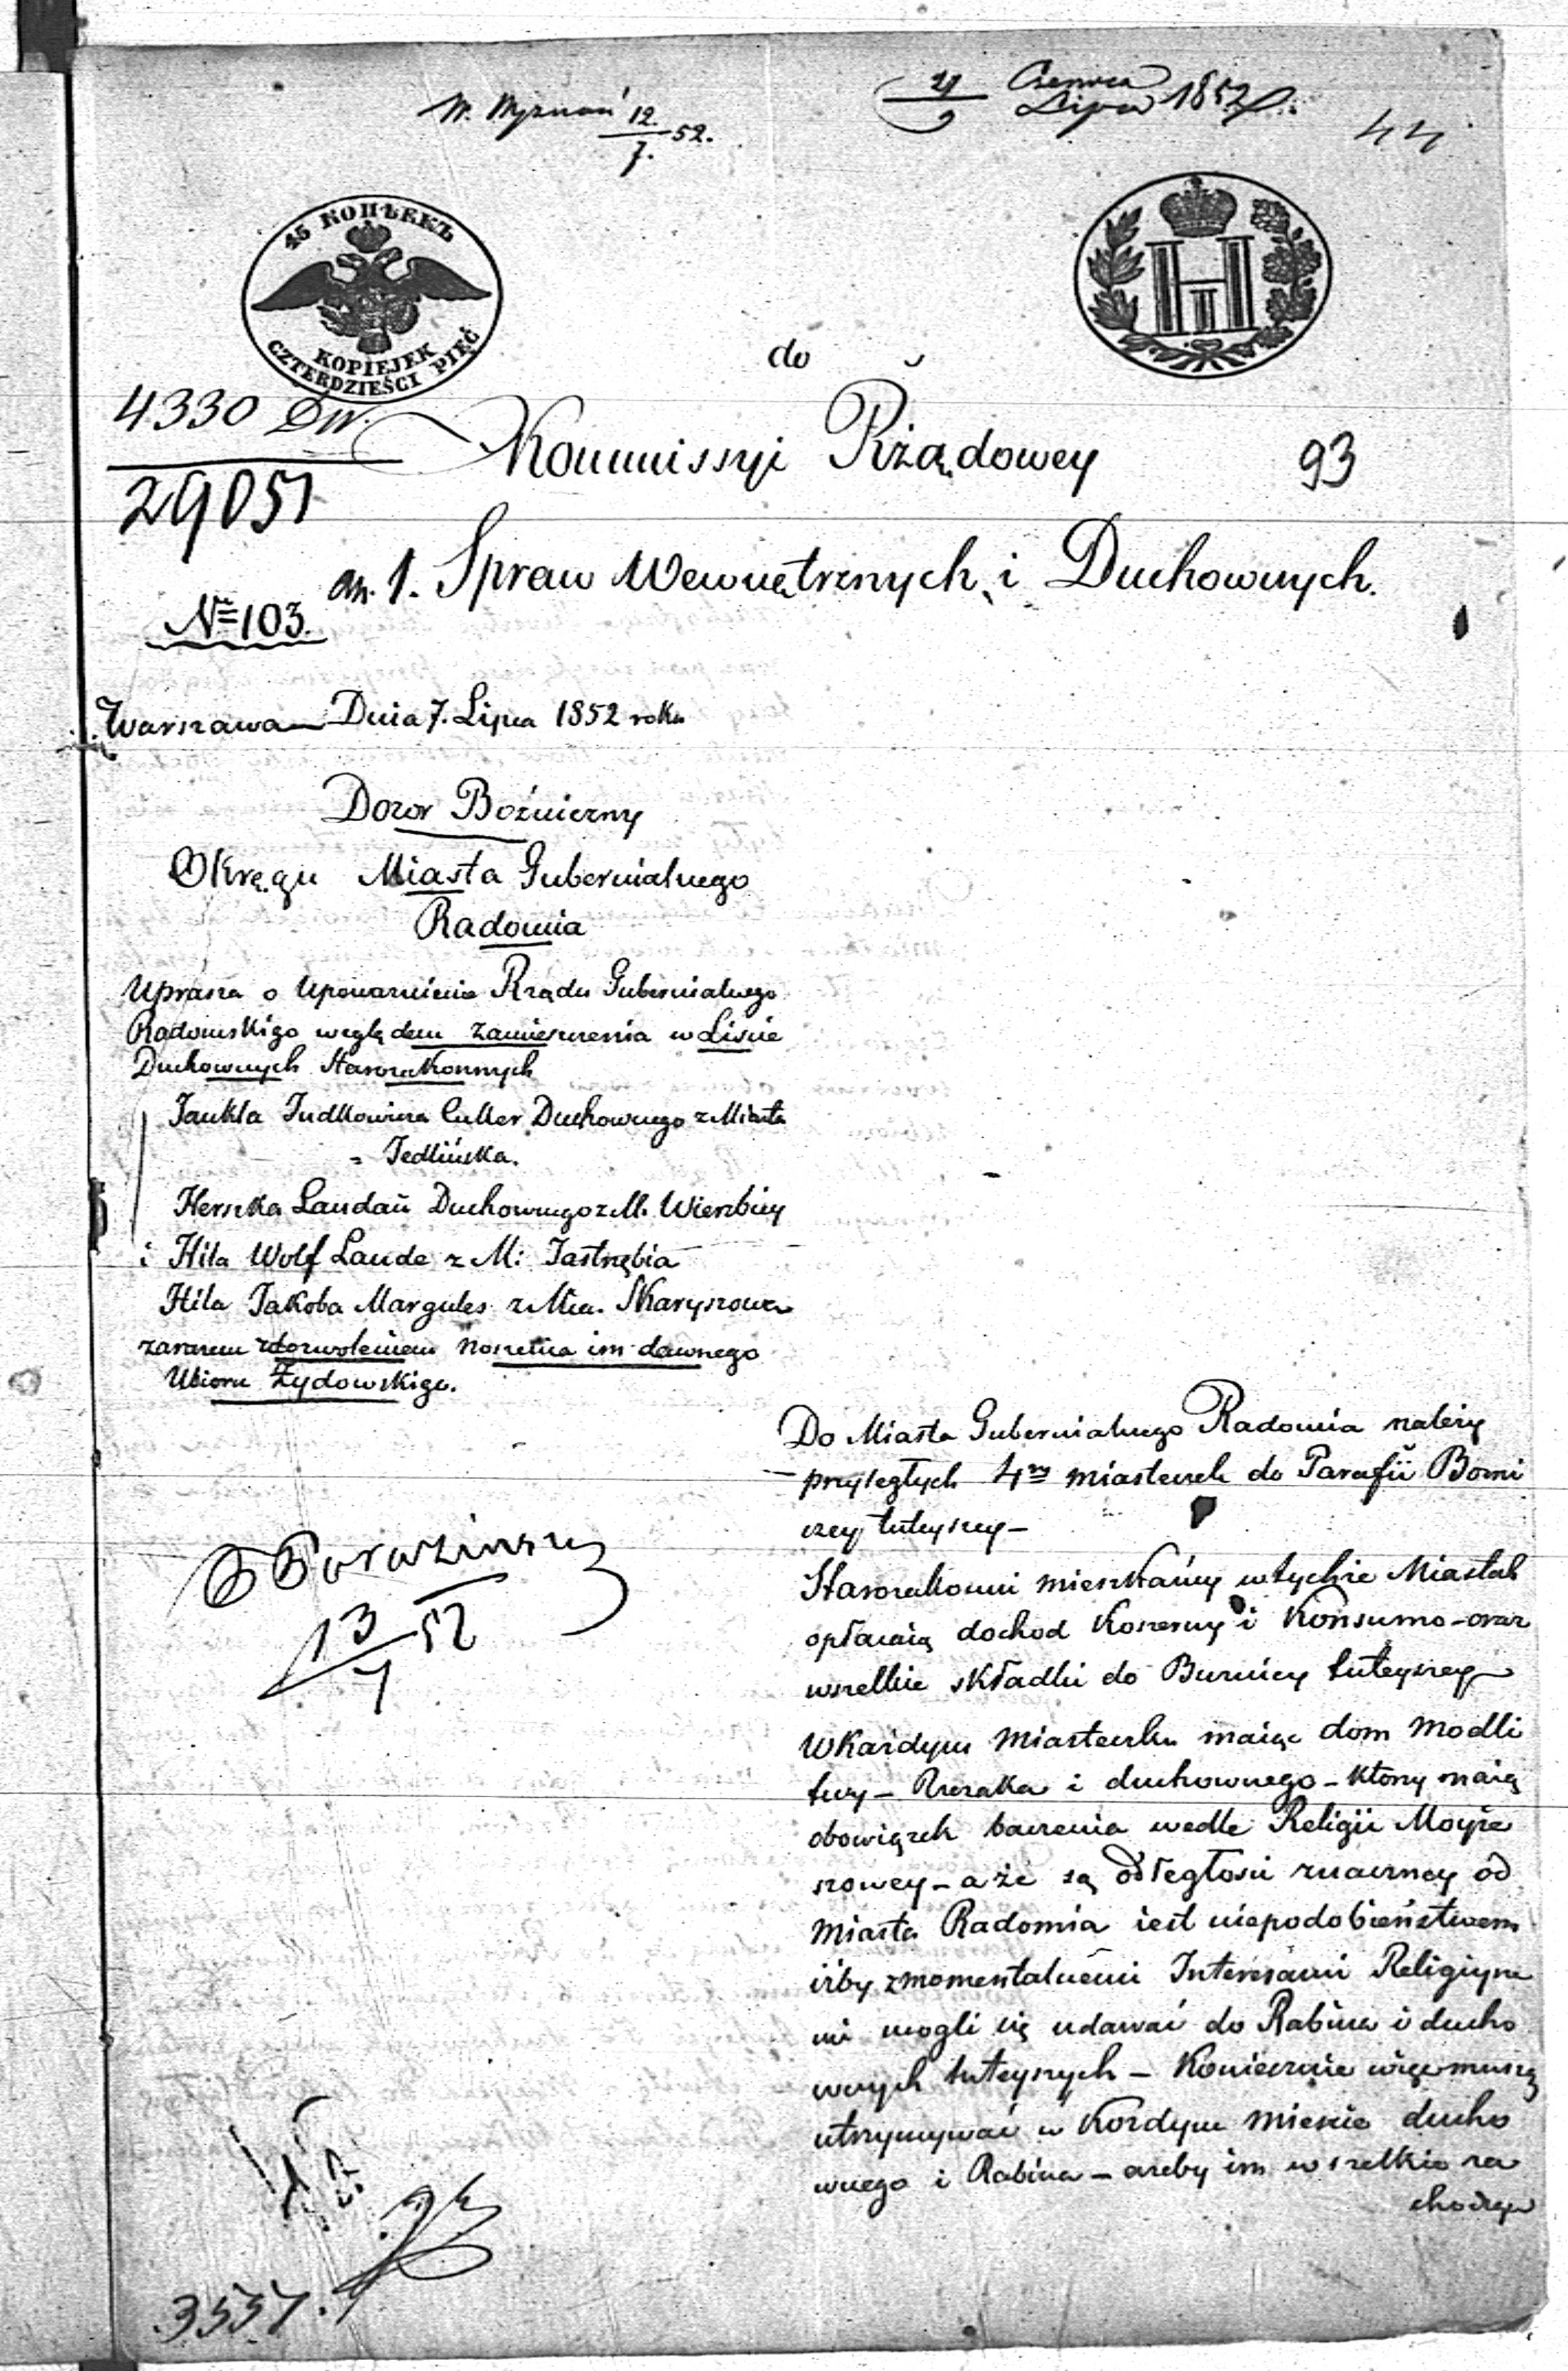 W. Wyznań 12./7. 52.
21/9 Czerwca/Lipca 1852 r.
44
45 КОПѢЕКЪ
KOPIEJEK
CZTERDZIEŚCI PIĘĆ
do
4330 DW.
Kommissyi Rżądowey
93
29051
Spraw Wewnętrznych i Duchownych.
№ 103.
Warszawa Dnia 7. Lipca 1852 roku
Dozor Boźniczny
Okręgu Miasta Gubernialnego
Radomia
Uprasza o Upoważnienie Rządu Gubernialnego
Radomskigo względem zamieszczenia w Liście
Duchownych Starozakonnych
Jankla Judkowicza Cukier Duchownego z Miasta
Jedlińska.
Herszka Landau Duchownego z M. Wierzbicy
i Hila Wolf Lande z M: Jastrzębia
Hila Jakoba Margules z Mia. Skaryszowa
zarazem zdozwoleniem noszenia im dawnego
Ubioru Żydowskigo.
Do Miasta Gubernialnego Radomia należy
przyległych 4ry miasteczek do Parafii Bożni
czey tuteyszey –
Starozakonni mieszkańcy w tychże Miastach
opłacaią dochod Koszerny i Konsumo – oraz
wszelkie składki do Bużnicy tuteyszey
W Każdym Miasteczku maiąc dom modli
twy – Rzezaka i duchownego – którzy maią
obowiązek baczenia wedle Religii Moyże
szowey – a że są odległości znaczney od
Miasta Radomia iest niepodobieństwem
iżby z momentalnemi Interesami Religiyne
mi mogli się udawać do Rabina i ducho
wnych tuteyszych – Koniecznie więc muszą
utrzymywać w Kozdym Mieście ducho
wnego i Rabina – ażeby im wszelkie za
chodzące
13/7 52
3537.